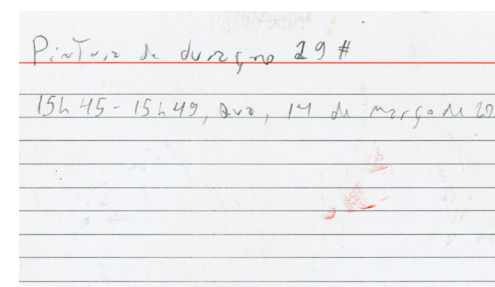 Pintura de duração 29 #
15h45-15h49, qua, 14 de março de 20